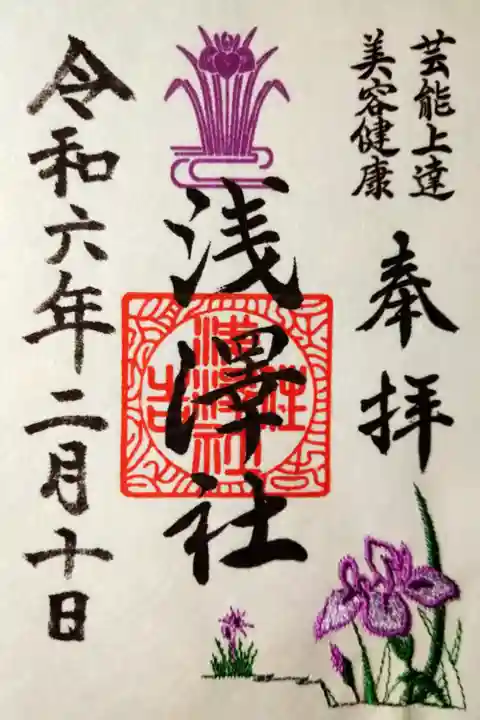 芸能上達
美容健康
奉拝
浅澤社
令和六年二月十日